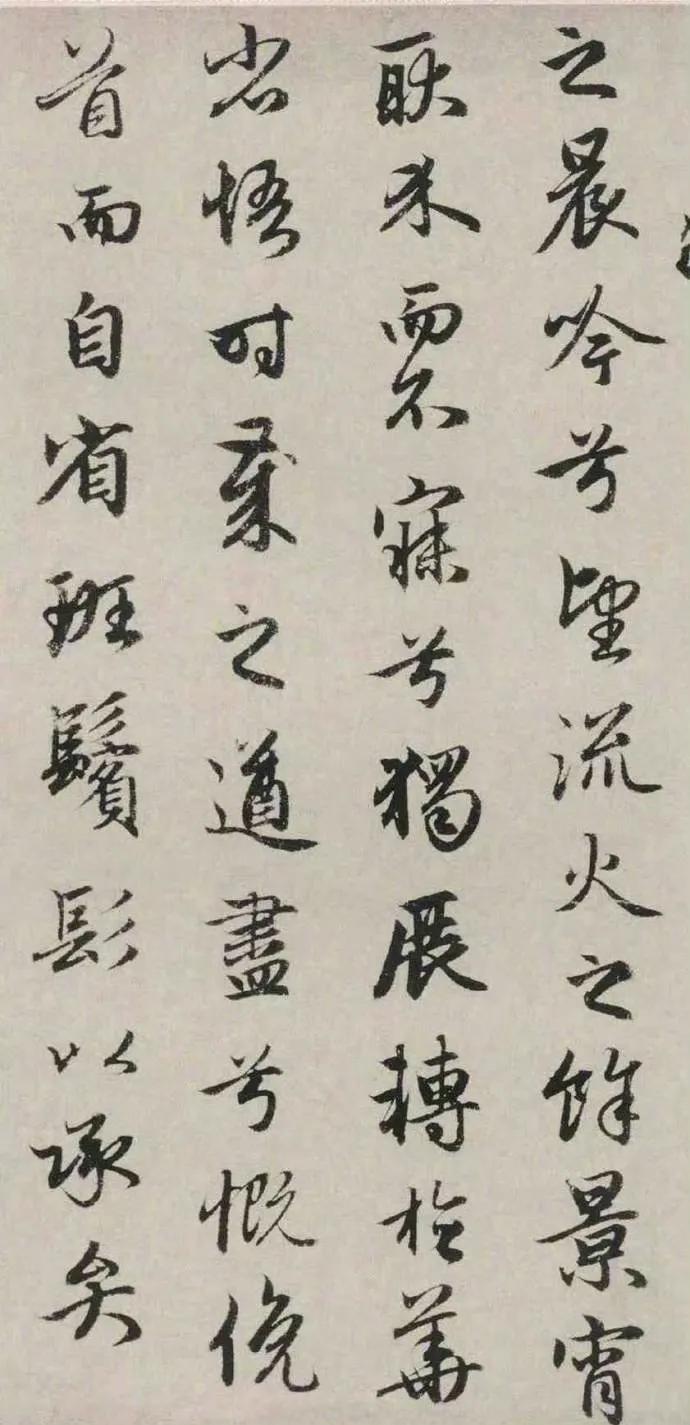 之晨吟兮望流火之餘景宵
耿介而不寐兮獨展轉於華
省悟時歲之遒盡兮慨俛
首而自省斑鬢髟以承弁